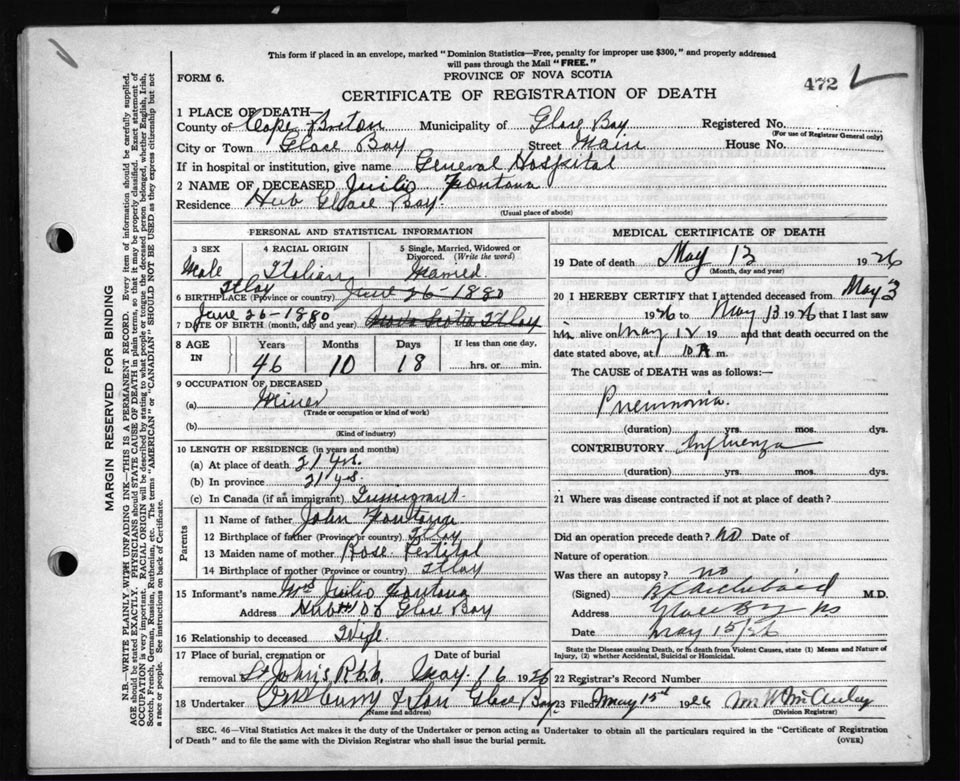 This form if placed in an envelope, marked "Dominion Statistics—Free, penalty for improper use $300," and properly addressed
will pass through the Mail "FREE."
FORM 6.
PROVINCE OF NOVA SCOTIA
472
CERTIFICATE OF REGISTRATION OF DEATH
1 PLACE OF DEATH—
County of Cape Breton Municipality of Glace Bay Registered No.
(For use of Registrar General only)
City or Town Glace Bay Street Main House No.
If in hospital or institution, give name General Hospital
2 NAME OF DECEASED Juilio Fontana
Residence Hub Glace Bay
(Usual place of abode)
PERSONAL AND STATISTICAL INFORMATION
3 SEX
Male
4 RACIAL ORIGIN
Italian
5 Single, Married, Widowed or Divorced. (Write the word)
Married
Itlay
6 BIRTHPLACE (Province or country) June 26-1880
June 26-1880
7 DATE OF BIRTH (month, day and year) Nova Scotia Itlay
8 AGE IN
Years Months Days If less than one day,
46 10 18 hrs. or min.
9 OCCUPATION OF DECEASED
(a) Miner
(Trade or occupation or kind of work)
(b)
(Kind of industry)
10 LENGTH OF RESIDENCE (in years and months)
(a) At place of death 21 yrs.
(b) In province 21 yrs.
(c) In Canada (if an immigrant) Immigrant
Parents
11 Name of father John Fontana
12 Birthplace of father (Province or country) Itlay
13 Maiden name of mother Rose
14 Birthplace of mother (Province or country) Itlay
15 Informant's name Mrs Juilio Fontana
Address Hub Glace Bay
16 Relationship to deceased Wife
17 Place of burial, cremation or removal Date of burial
St John's May 16 1926
18 Undertaker & Son Glace Bay
(Name and address)
MEDICAL CERTIFICATE OF DEATH
19 Date of death May 13 1926
(Month, day and year)
20 I HEREBY CERTIFY that I attended deceased from May 3
1926 to May 13 1926 that I last saw
him alive on May 12 19 and that death occurred on
date stated above, at 10 A m.
The CAUSE of DEATH was as follows:—
Pneumonia
(duration) yrs. mos. dys.
CONTRIBUTORY Influenza
(duration) yrs. mos. dys.
21 Where was disease contracted if not at place of death?
Did an operation precede death? No Date of
Nature of operation
Was there an autopsy? no
(Signed) Archibald M.D.
Address Glace Bay NS
Date May 15/26
State the Disease causing Death, or in death from Violent Causes, state (1) Means and Nature of Injury, (2) whether Accidental, Suicidal or Homicidal.
22 Registrar's Record Number
23 Filed May 15th 1926
(Division Registrar)
SEC. 46—Vital Statistics Act makes it the duty of the Undertaker or person acting as Undertaker to obtain all the particulars required in the "Certificate of Registration
of Death" and to file the same with the Division Registrar who shall issue the burial permit.
(OVER)
MARGIN RESERVED FOR BINDING
N.B.—WRITE PLAINLY, WITH UNFADING INK—THIS IS A PERMANENT RECORD. Every item of information should be carefully supplied.
AGE should be stated EXACTLY. PHYSICIANS should STATE CAUSE OF DEATH in plain terms, so that it may be properly classified. Exact statement of
OCCUPATION is very important. RACIAL ORIGIN will be described by stating to what people or tongue the deceased person belonged, whether English, Irish,
Scotch, French, German, Russian, Ruthenian, etc. The terms "AMERICAN" or "CANADIAN" SHOULD NOT BE USED as they express citizenship but not
a race or people. See instructions on back of Certificate.